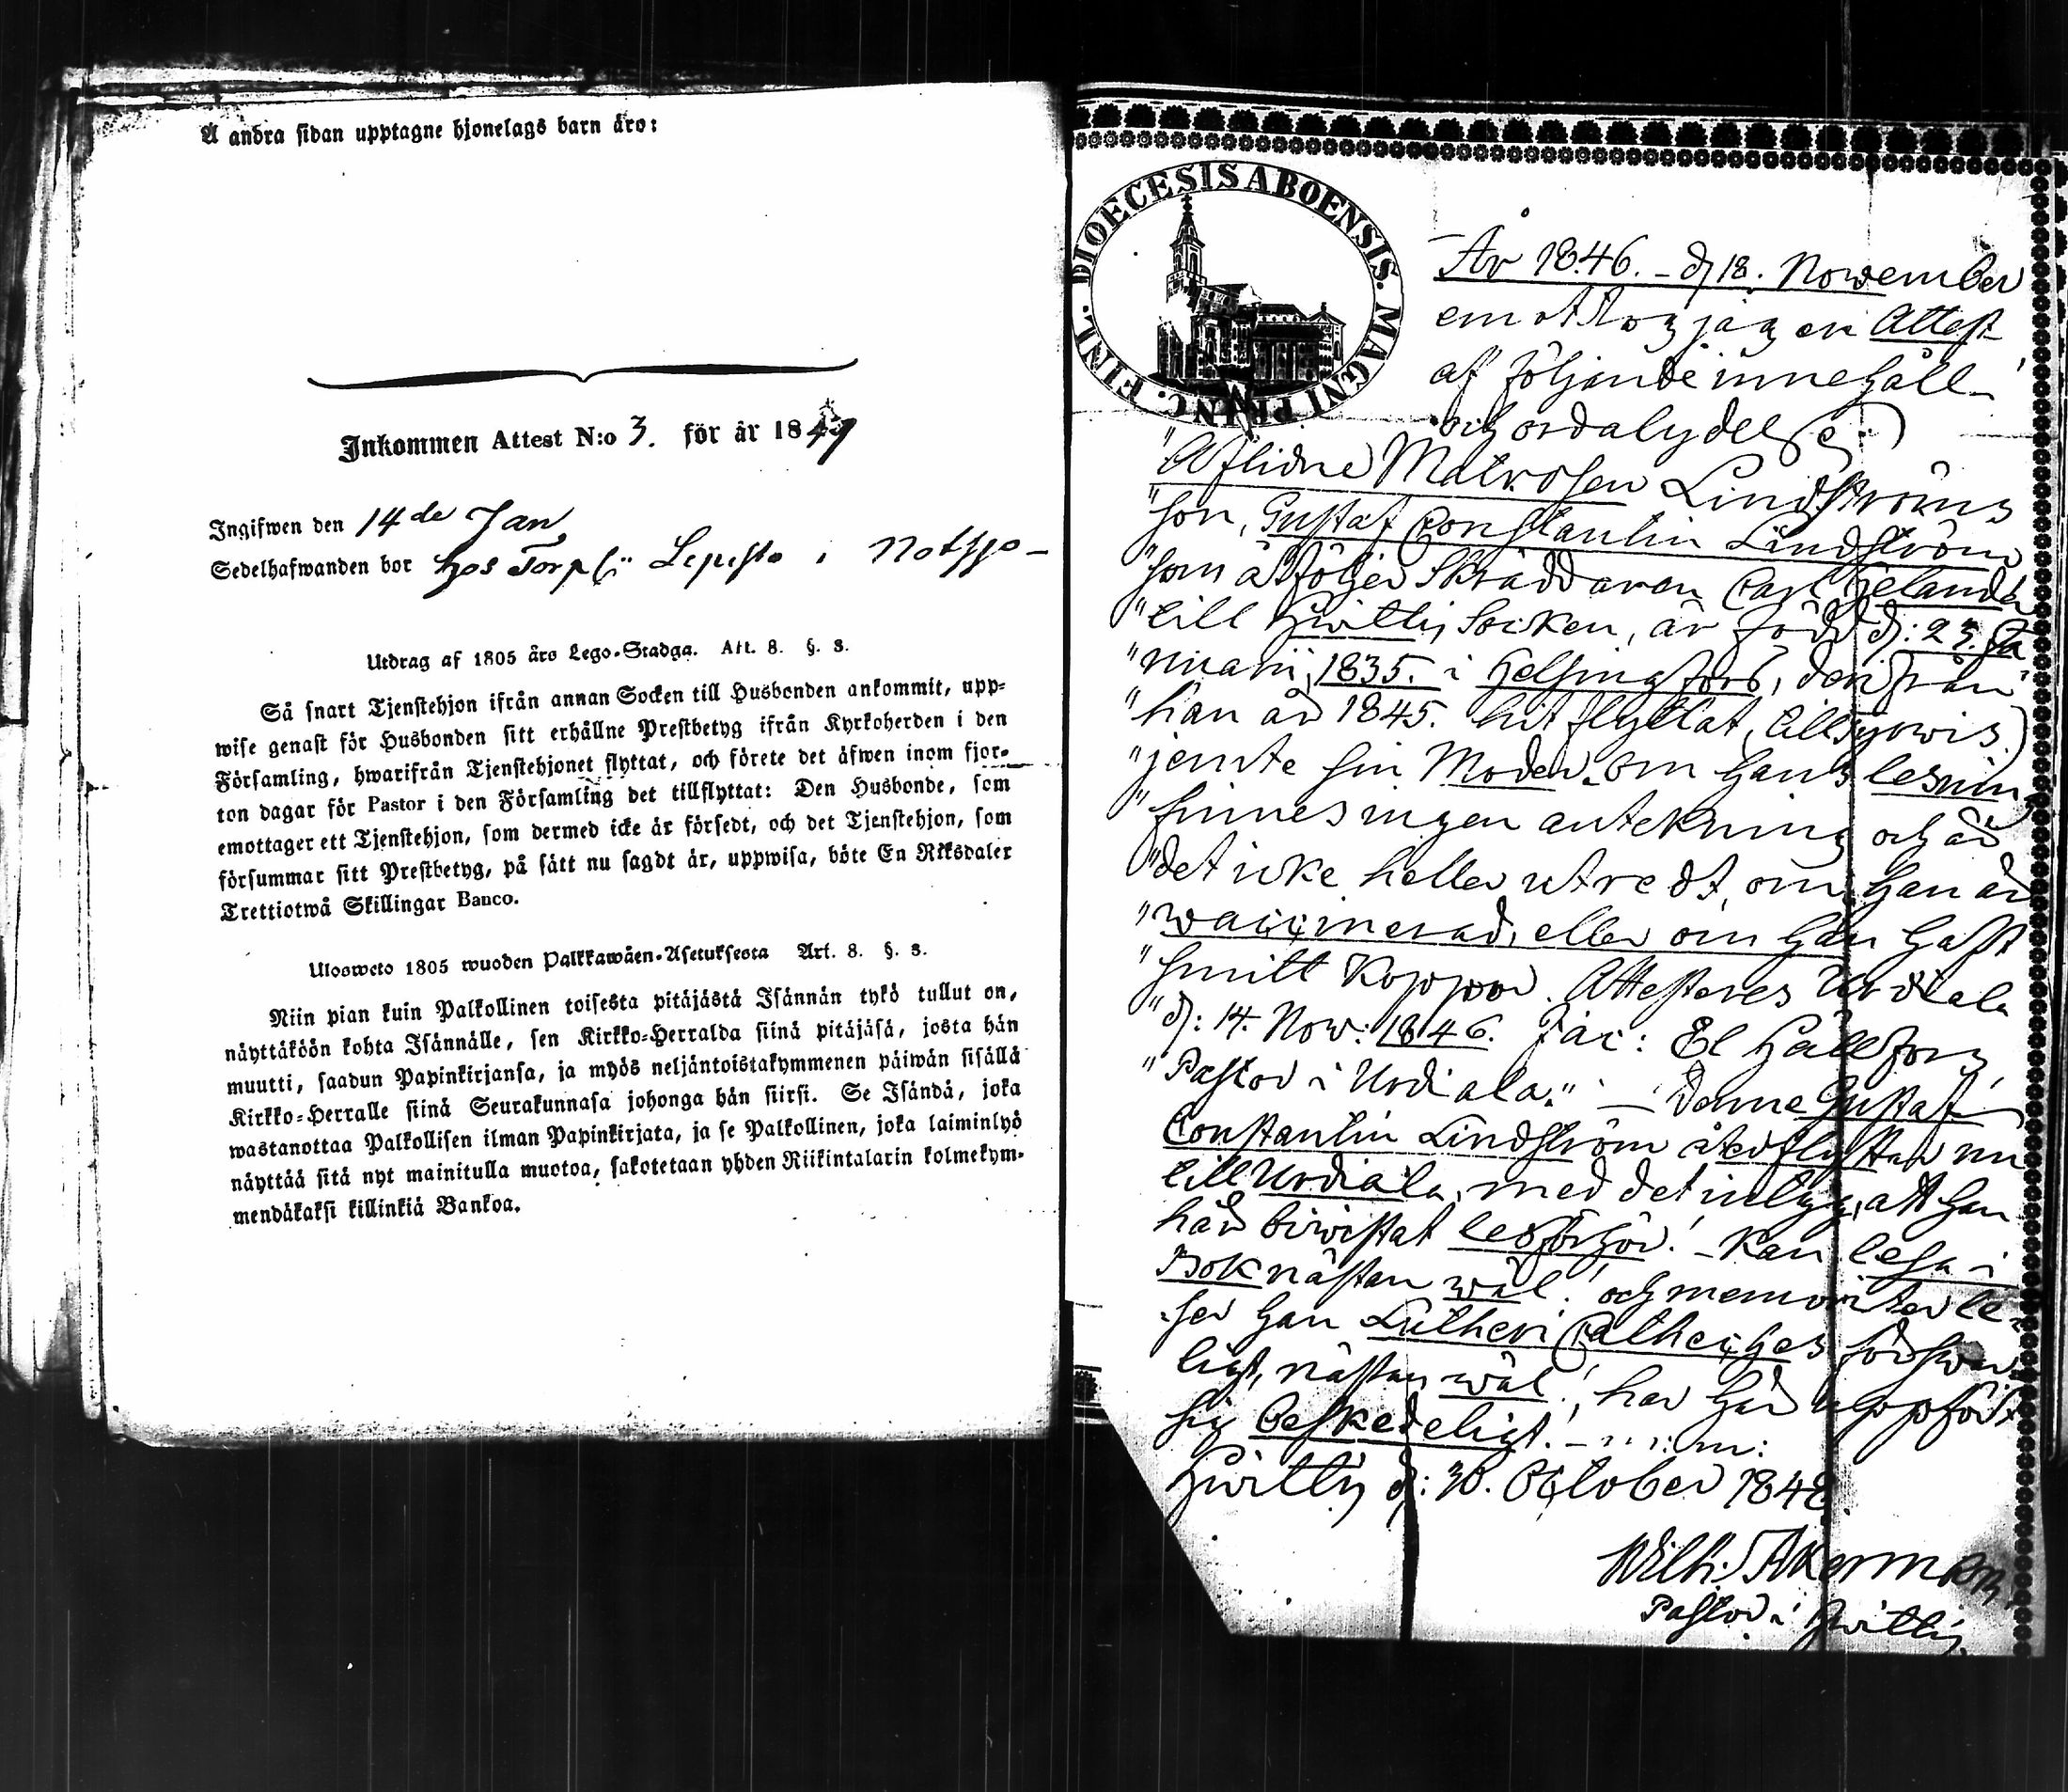 Å andra sidan upptagne hjonelags barn äro:
Inkommen Attest N:o 3. för år 1849
Ingifwen den 14de Jan
Sedelhafwanden bor hos Torp Lepisto i
Utdrag af 1805 års Lego-Stadga. Art. 8. §. 3.
Så snart Tjenstehjon ifrån annan Socken till Husbonden ankommit, upp-
wise genast för Husbonden sitt erhållne Prestbetyg ifrån Kyrkoherden i den
Församling, hwarifrån Tjenstehjonet flyttat, och förete det äfwen inom fjor-
ton dagar för Pastor i den Församling det tillflyttat: Den Husbonde, som
emottager ett Tjenstehjon, som dermed icke är försedt, och det Tjenstehjon, som
försummar sitt Prestbetyg, på sätt nu sagdt är, uppwisa, böte En Riksdaler
Trettiotwå Skillingar Banco.
Ulosweto 1805 wuoden Palkkawäen-Asetuksesta Art. 8. §. 3.
Niin pian kuin Palkollinen toisesta pitäjästä Isännän tykö tullut on,
näyttäköön kohta Isännälle, sen Kirkko-Herralda siinä pitäjäsä, josta hän
muutti, saadun Papinkirjansa, ja myös neljäntoistakymmenen päiwän sisällä
Kirkko-Herralle siinä Seurakunnasa johonga hän siirsi. Se Isändä, joka
wastanottaa Palkollisen ilman Papinkirjata, ja se Palkollinen, joka laiminlyö
näyttää sitä nyt mainitulla muotoa, sakotetaan yhden Riikintalarin kolmekym-
mendäkaksi killinkiä Bankoa.
FINL. DIOECESIS ABOENSIS. MAGNI PRINC.
År 1846. - d. 18. November
emottog jag en Attest
af följande innehåll
och ordalydelse:
"Aflidne Matrosen Lindströms
"son, Gustaf Constantin Lindström
"som åtföljer Skräddaren Carl Helander
"till Hwittis Socken, är född d: 23. Ja
"nuarii, 1835. i Helsingfors, derifrån
"han år 1845. hit flyttat,
"jemte sin Moder. Om hans lesning
"finnes ingen antekning och är
"det icke heller utredt, om han är
"waccinerad, eller om han haft
"smitt koppor. Attesteres Urdiala
"d: 14. Nov: 1846. Jac: El Hällfors,
"Pastor i Urdiala." — Denne Gustaf
Constantin Lindström återflyttar nu
till Urdiala, med det intyg, att han
här biwistat lesförhör! - kan lesa i
Bok nästan wäl! och memoriter le-
ser han Lutheri Catheches förswar-
ligt, nästan wäl!, har här uppfört
sig beskedeligt! -
Hwittis d: 30. October 1848
Wilh: Åkerman,
Pastor i Hwittis.